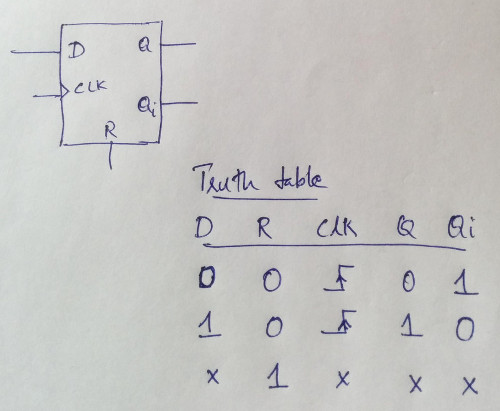 D Q
CLK
Qi
R
Truth table
D R Clk Q Qi
0 0 0 1
1 0 1 0
x 1 x x x